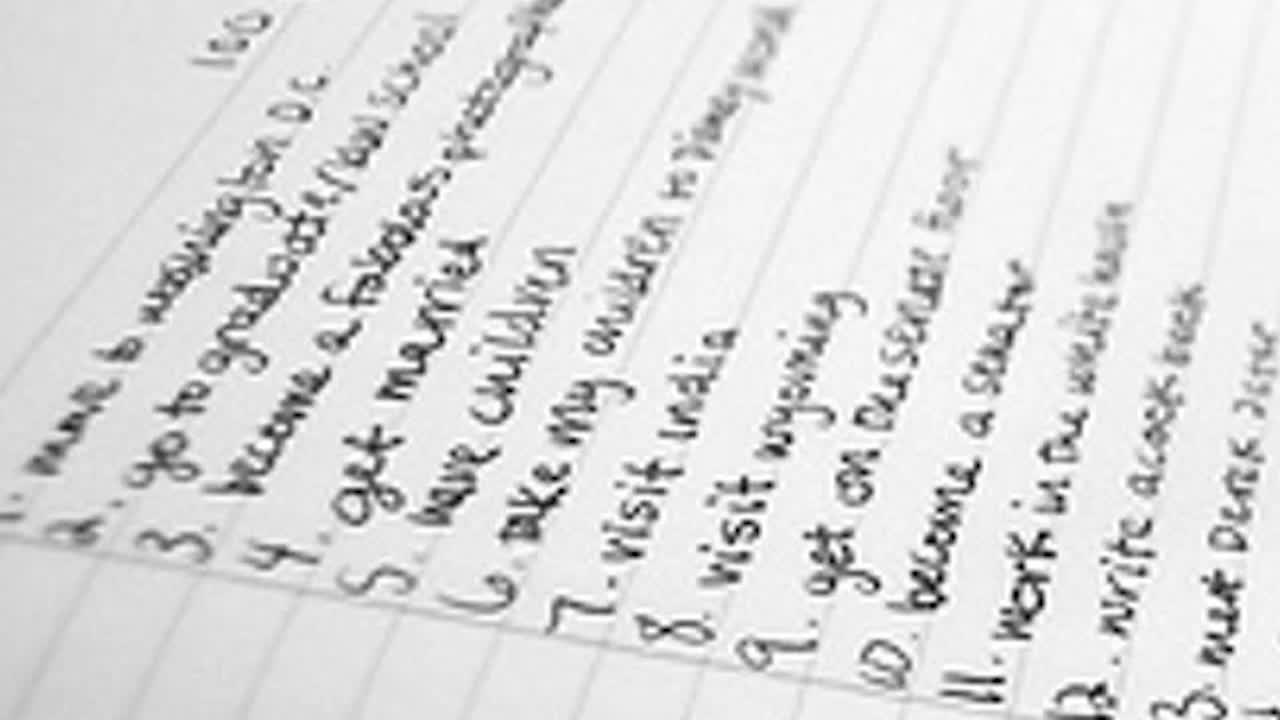 150
1. move to washington D.C.
2. go to graduate/law school
3. become a fabulous photographer
4. get married
5. have children
6. take my children to Disney world
7. visit india
8. visit wyoming
9. get on the senate floor
10. become a senator
11. work in the white house
12. write a cook book
3. meet Derek Jeter